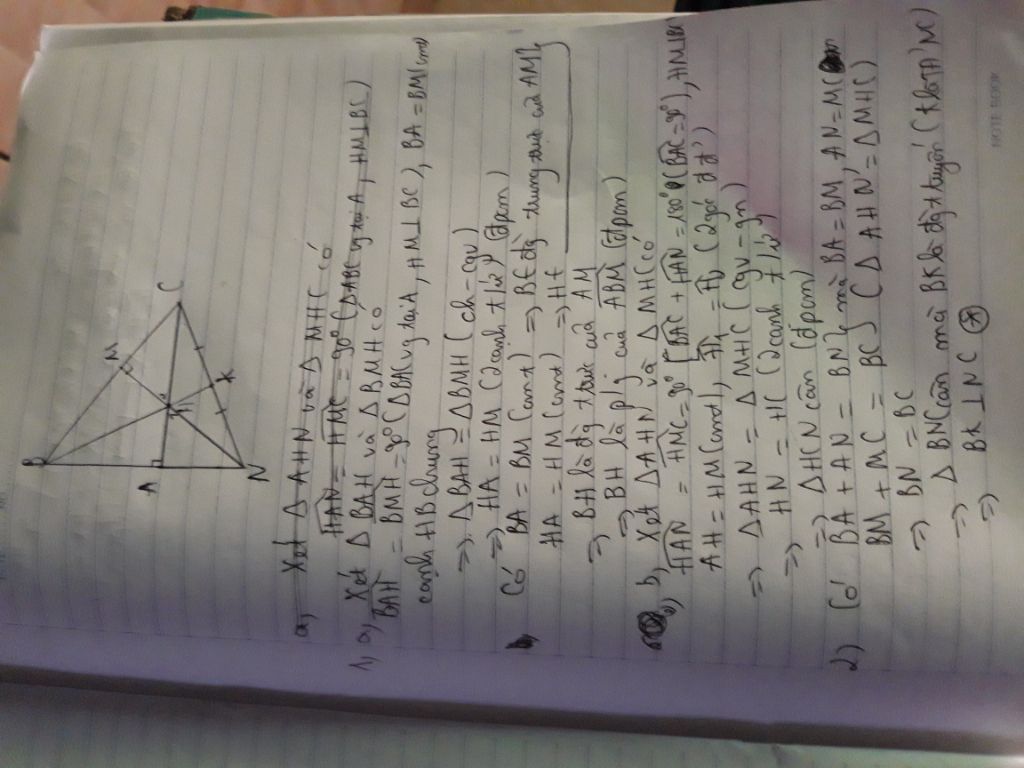 B
M
C
A
H
K
N
a, Xét △ AHN và △ MHC có
HAN = HMC = 90° (△ABC vg tại A, HM⊥BC)
1, a, Xét △ BAH và △ BMH có
BAH = BMH = 90° (△BAC vg tại A, HM⊥BC), BA = BM (cmt)
cạnh HB chung
=> △BAH = △BMH (ch-cgv)
=> HA = HM (2 cạnh t/ứ) (đpcm)
Có BA = BM (cmt) => BE đg trung trực của AM
HA = HM (cmt) => HE
=> BH là đg trực của AM
=> BH là p/g của ABM (đpcm)
b, Xét △AHN và △MHC có
HAN = HMC = 90° [BAC + HAN = 180° (BAC = 90°), HM⊥BC
AH = HM (cmt), H = H (2 góc đ đ')
=> △AHN = △MHC (cgv-gn)
=> HN = HC (2 cạnh t/ứ)
=> △HCN cân (đpcm)
2) Có BA + AN = BN } mà BA = BM, AN = MC
BM + MC = BC } (△AHN = △MHC)
=> BN = BC
=> △ BNC cân mà BK là đg t tuyến (K là TĐ NC)
=> BK ⊥ NC *
NOTE BOOK